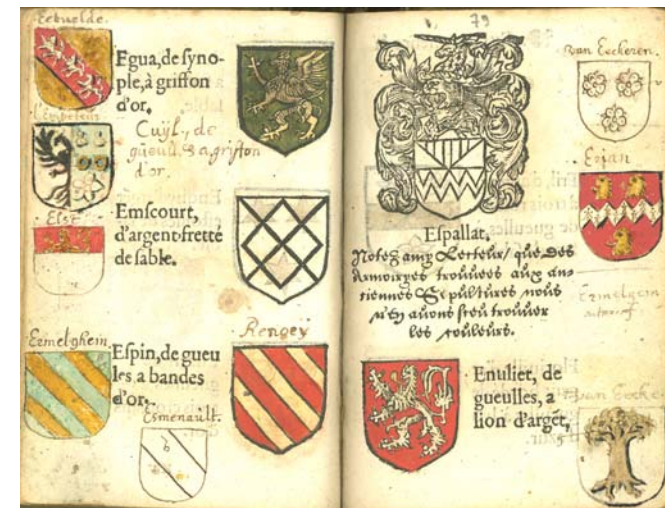 Egua, de syno-
ple, à griffon
d'or.
Cuijl, de
gueull. a griffon
d'or
Elst
Emscourt,
d'argent fretté
de sable.
Ermelghein
Espin, de gueu
les a bandes
d'or.
Rengey
Esmenault.
79
van Eeckeren.
Espallat.
Notez amy Lecteur / que des
Armoiryes trouvees aux an-
tiennes Sepultures nous
n'en auons sceu trouuer
les couleurs.
Erian
Ermelgein
Enuliet, de
gueulles, a
lion d'argẽt.
van Eecke